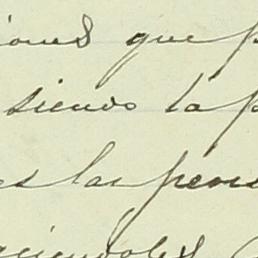 iones que p
siendo la p
es las pers
ciendoles